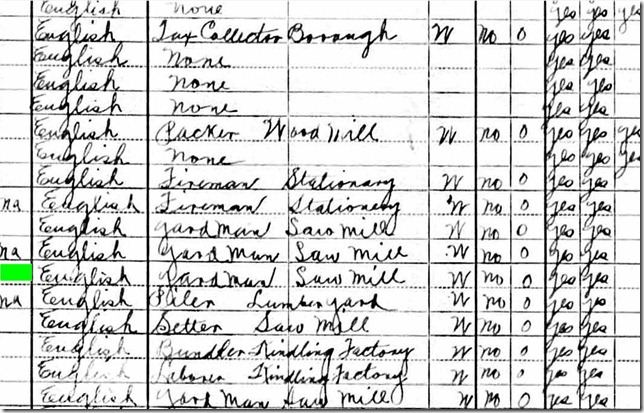 English None yes yes yes
English Tax Collector Borough W no 0 yes yes
English None yes yes
English None yes yes
English None yes yes
English Packer Wood Mill W no 0 yes yes yes
English None yes yes yes
English Fireman Stationary W no 0 yes yes
na English Fireman Stationery W no 0 yes yes
English Yard Man Saw Mill W no 0 yes yes
na English Yard Man Saw Mill W no 0 yes yes
English Yard Man Saw Mill W no 0 yes yes
na English Piler Lumber Yard W no 0 yes yes
English Setter Saw Mill W no 0 yes yes
English Bundler Kindling Factory W no 0 yes yes
English Laborer Kindling Factory W no 0 yes yes
English Yard Man Saw Mill W no 0 yes yes